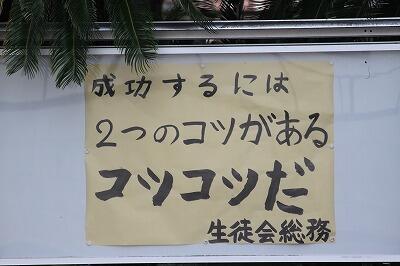 成功するには
2つのコツがある
コツコツだ
生徒会総務